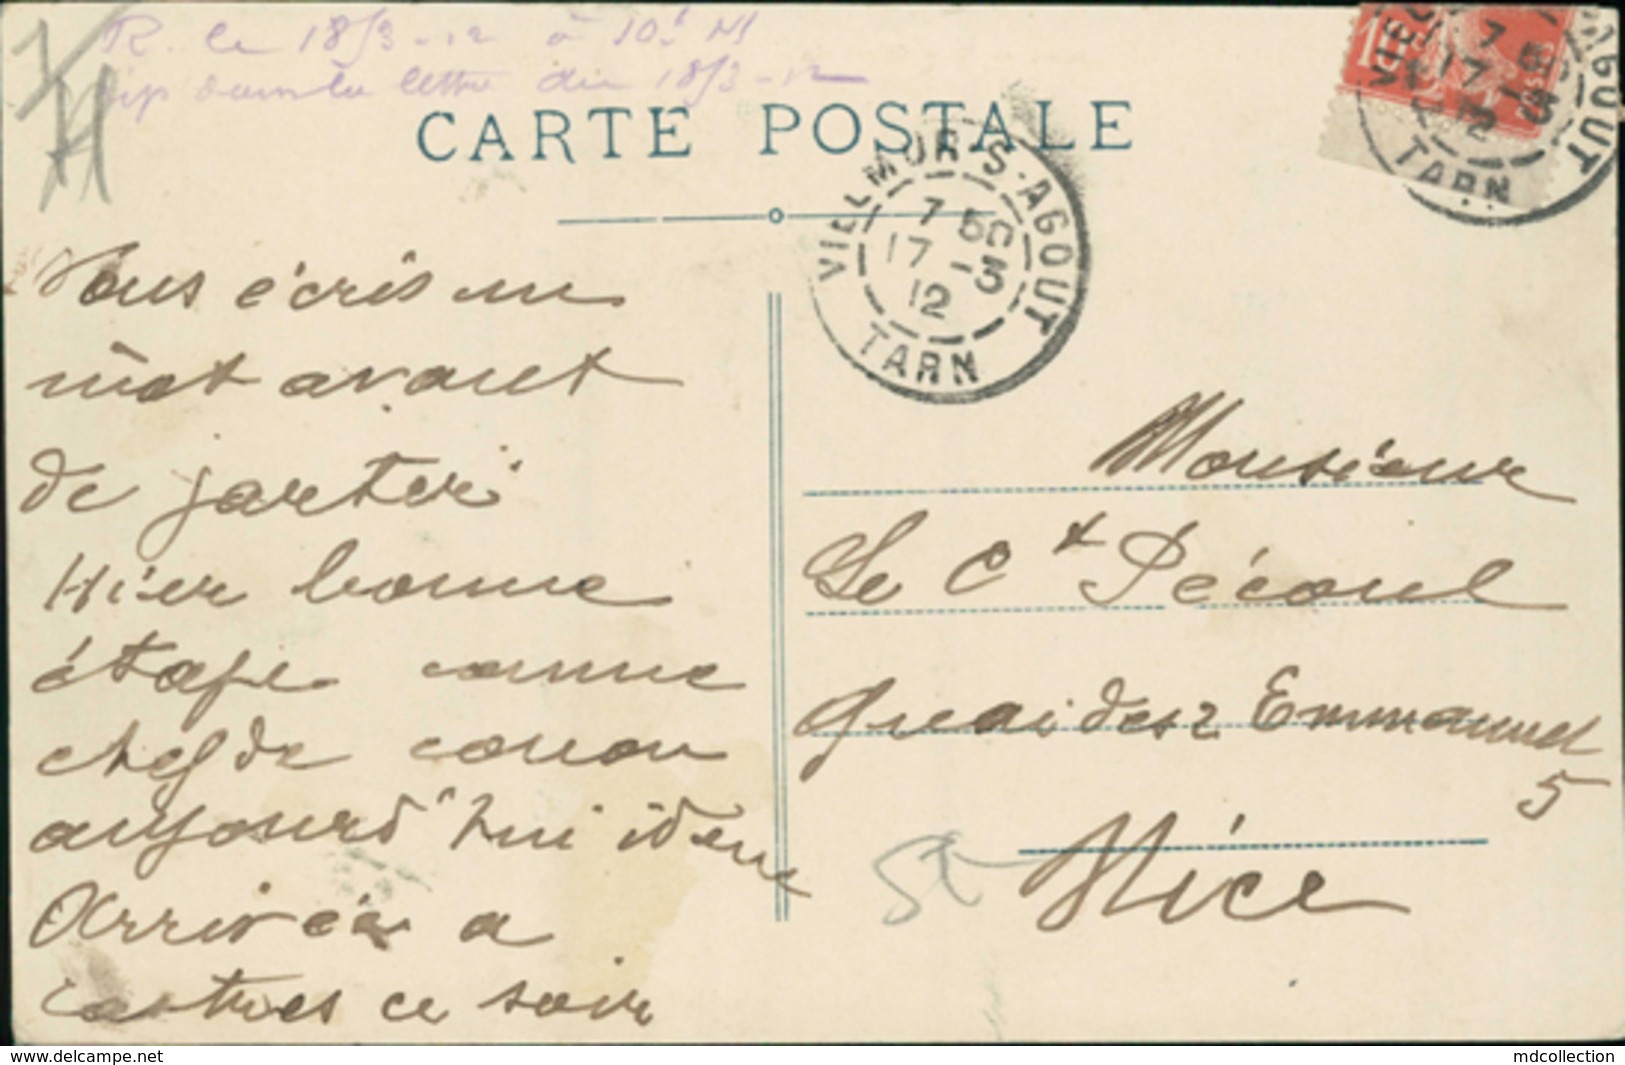 R. le 18/3-12 à 10h M
rép dans la lettre du 18/3-12
CARTE POSTALE
VIELMUR-S-AGOUT
7 50
17 -3
12
TARN
VIEL AGOUT
7 5
17 -3
12
TARN
Vous écris un
mot avant
de partir
Hier bonne
étape comme
chef de convoi
aujourd'hui idem
Arrivée a
castres ce soir
Monsieur
Le Ct Pécoul
Quai des 2 Emmanuel
5
Nice
www.delcampe.net
mdcollection